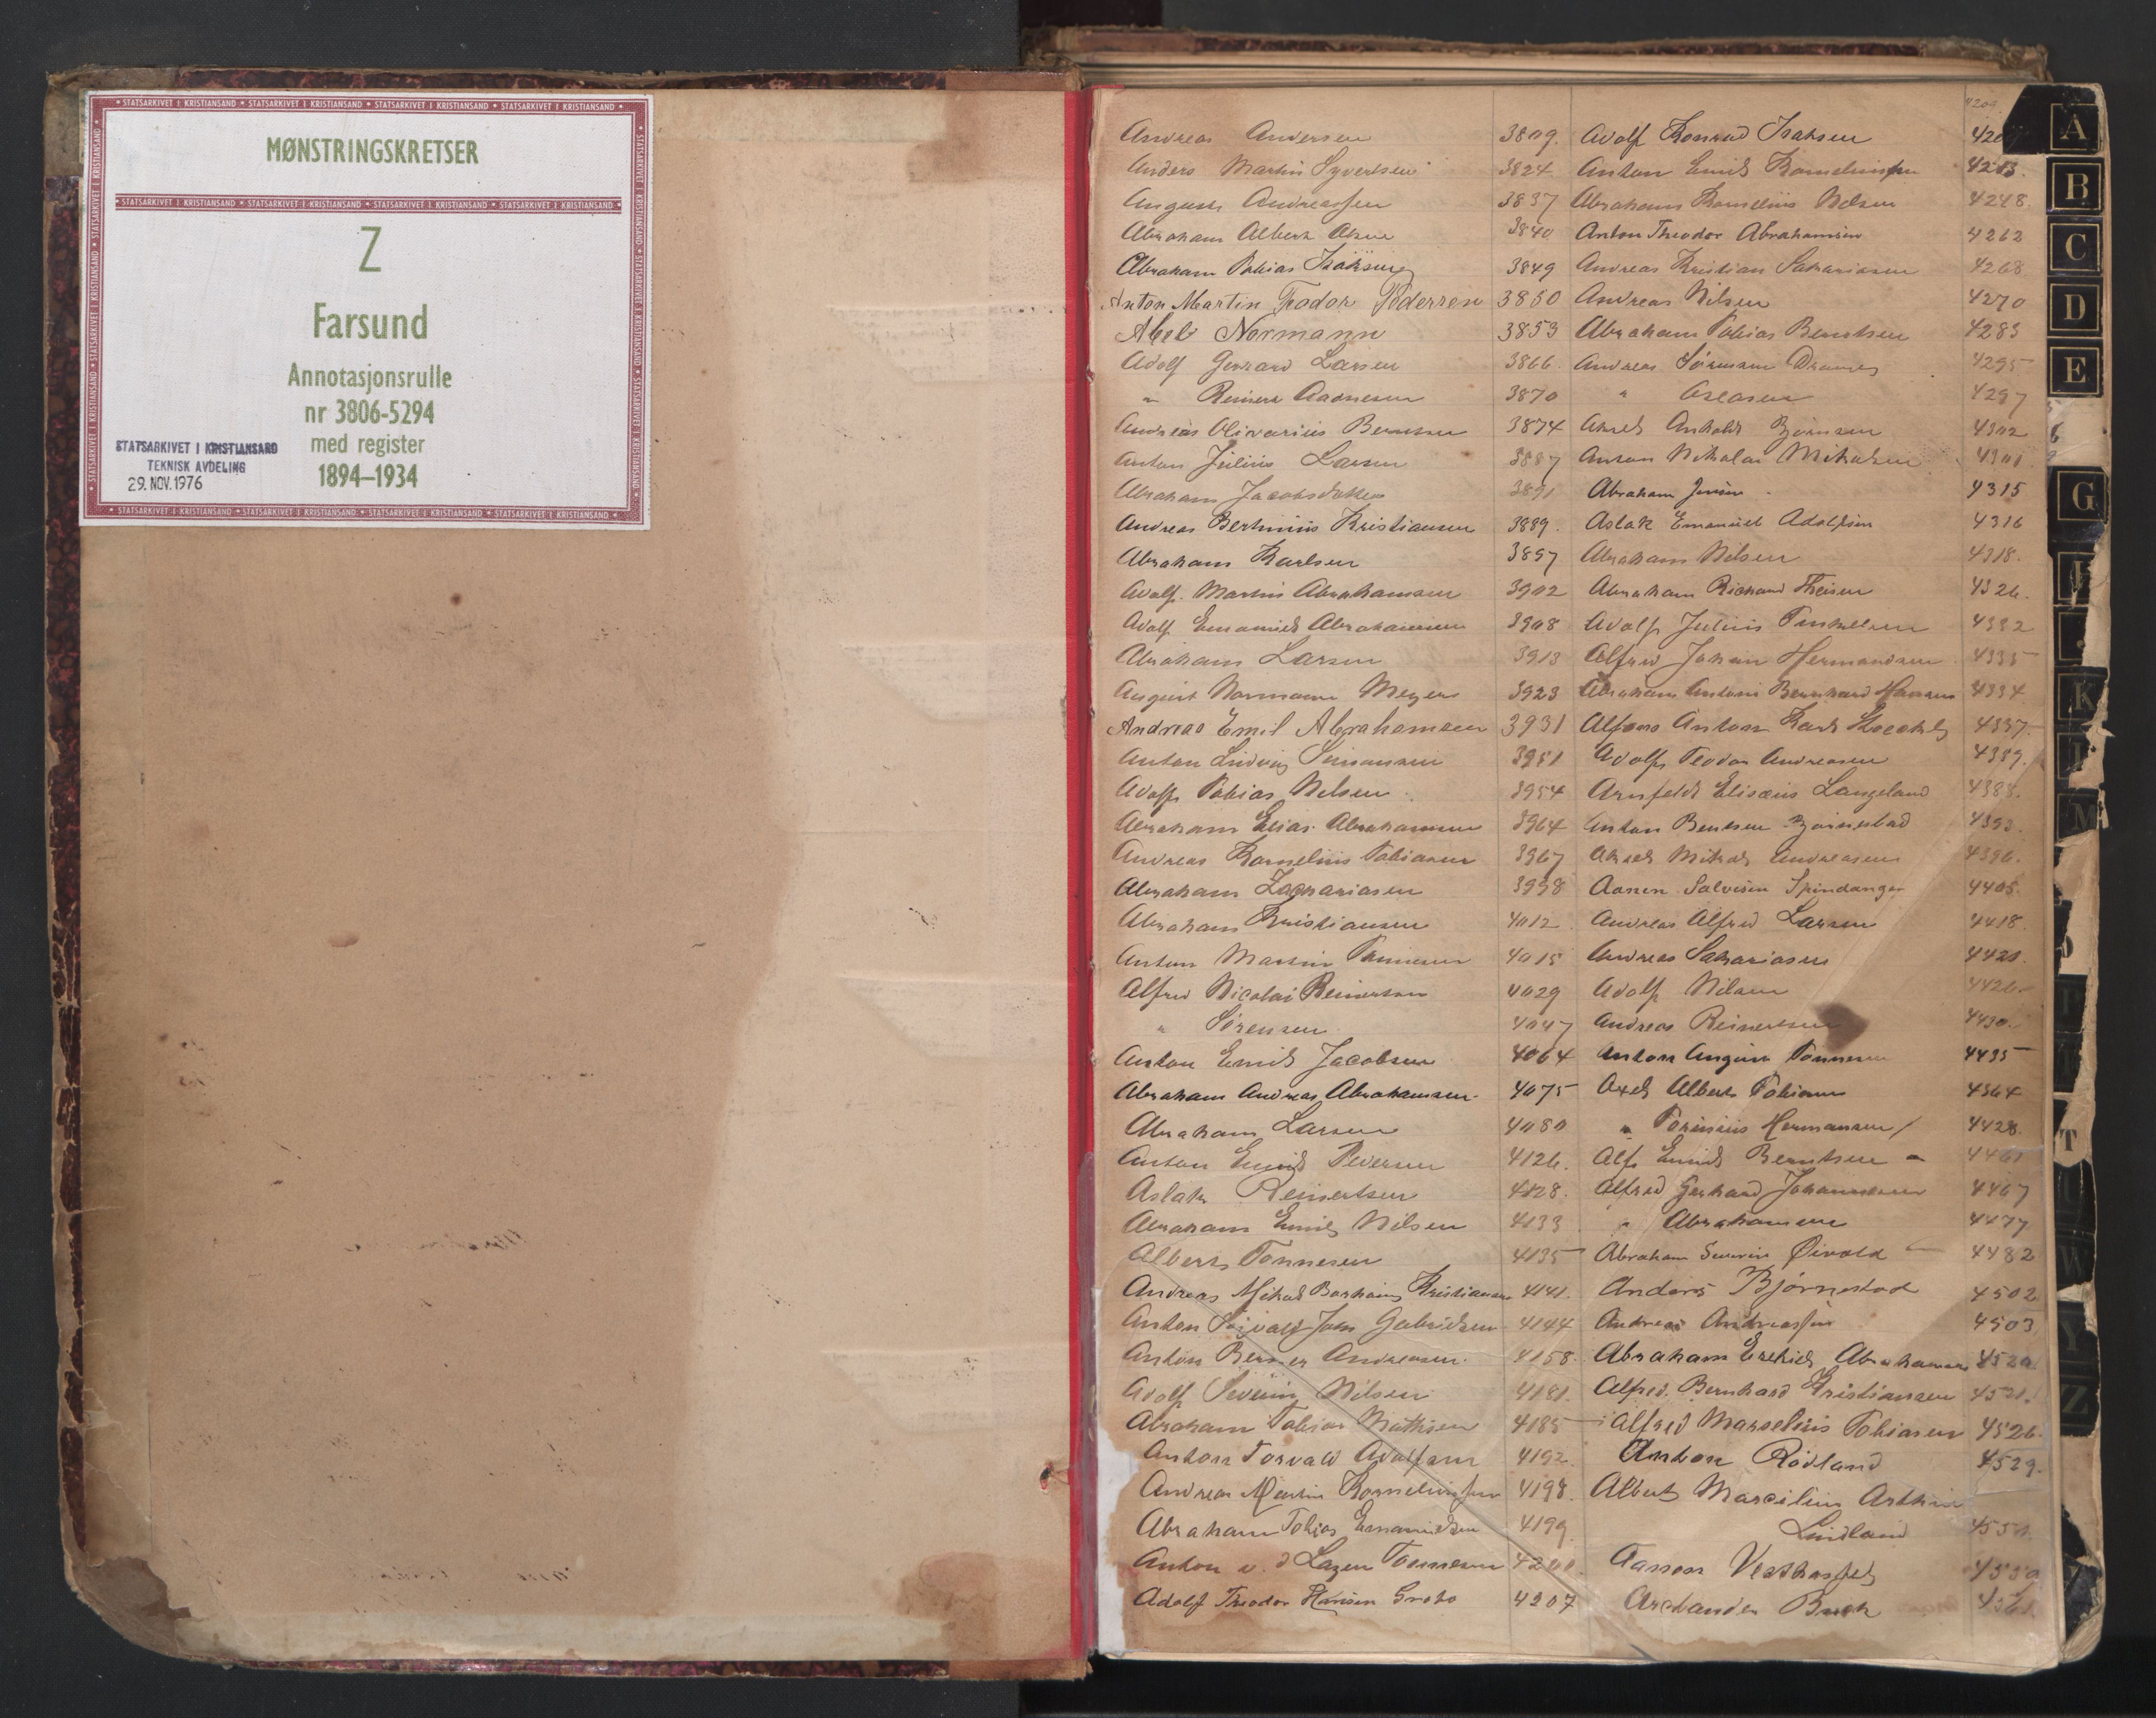 MØNSTRINGSKRETSER
Z
Farsund
Annotasjonsrulle
nr 3806-5294
med register
1894–1934
STATSARKIVET I KRISTIANSAND
TEKNISK AVDELING
29. NOV. 1976
Andreas Andersen 3809.
Anders Martin Syvertsen 3824
August Andreassen 3837
Abraham Albert Olsen 3840
Abraham Tobias Isaksen 3849
Anton Martin Teodor Pedersen 3850
Abel Normann 3853
Adolf Gerhard Larsen 3866.
" Reinert Aadnesen 3870
Andreas Olivarius Berntsen 3874
Anton Julius Larsen 3887
Abraham Jacobs 3891
Andreas Bertinius Kristiansen 3889.
Abraham Karlsen 3897
Adolf Martin Abrahamsen 3902
Adolf Emanuel Abrahamsen 3908
Abraham Larsen 3913
August Normann Meyer 3923
Andreas Emil Abrahamsen 3931
Anton Ludvig Simonsen 3951
Adolf Tobias Nilsen 3954
Abraham Elias Abrahamsen 3964
Andreas Kornelius Tobiasen 3967
Abraham Zachariasen 3998
Abraham Kristiansen 4012
Anton Martin Tønnesen 4015
Alfred Nicolai Reinertsen 4029
" Sørensen 4047
Anton Emil Jacobsen 4064
Abraham Andreas Abrahamsen 4075
Abraham Larsen 4080
Anton Emil Pedersen 4126.
Aslak Reinertsen 4128.
Abraham Emil Nilsen 4133
Albert Tønnesen 4135
Andreas Mikal Kristiansen 4141.
Anton Sigvald John Gabrielsen 4144
Anton Berner Andreasen 4158.
Adolf Severin Nilsen 4181.
Abraham Tobias Mathisen 4185
Anton Torvald Adolfsen 4192
Andreas Martin Korneliussen 4198.
Abraham Tobias Emanuelsen 4199
Anton v. d Lagen Tønnesen 4200.
Adolf Theodor Hansen Grobo 4207
4209
Adolf Konrad Isaksen
Anton Emil Korneliussen 4213.
Abraham Kornelius Nilsen 4248.
Anton Theodor Abrahamsen 4262
Andreas Kristian Sakariasen 4268
Andreas Nilsen 4270
Abraham Tobias Berntsen 4283
Andreas Sørensen 4295
" Aseasen 4297
Aksel Bjørnsen 4302
Anton Nikolai Mikalsen 4301
Abraham Jensen 4315
Aslak Emanuel Adolfsen 4316
Abraham Nilsen 4318.
Abraham Rickard Theisen 4326.
Adolf Julius 4332
Alfred Johan Hermandsen 4335
Abraham Antoni Bernhard Hansen 4334
Alfons Anton Karl 4337.
Adolf Teodor Andreasen 4339.
Arnfeldt Elisæus Langeland 4388.
Anton Bentsen Bjørnestad 4393.
Aksel Mikal Andreasen 4396.
Aanen Salvesen Spindanger 4405.
Andreas Alfred Larsen 4418.
Andreas Sakariasen 4421.
Adolf Nilsen 4426.
Andreas Reinertsen 4430.
Anton August Tønnesen 4435
Axel Albert Tobiasen 4364
" Tørinius Hermansen / 4428.
Alf Emil Berntsen 4461
Alfred Gerhard Johannesen 4467
" Abrahamsen 4477
Abraham Severin Øivold 4482
Anders Bjørnestad 4502
Andreas Andreassen 4503
Abraham Esekiel Abrahamsen 4520
Alfred Bernhard Kristiansen 4521.
Alfred Marselius Tobiasen 4526.
Anton Rødland 4529.
Albert Marcelius Arthur
Lindland
Aanon
Buch
A
B
C
D
E
G
K
M
T
W
Y
Z